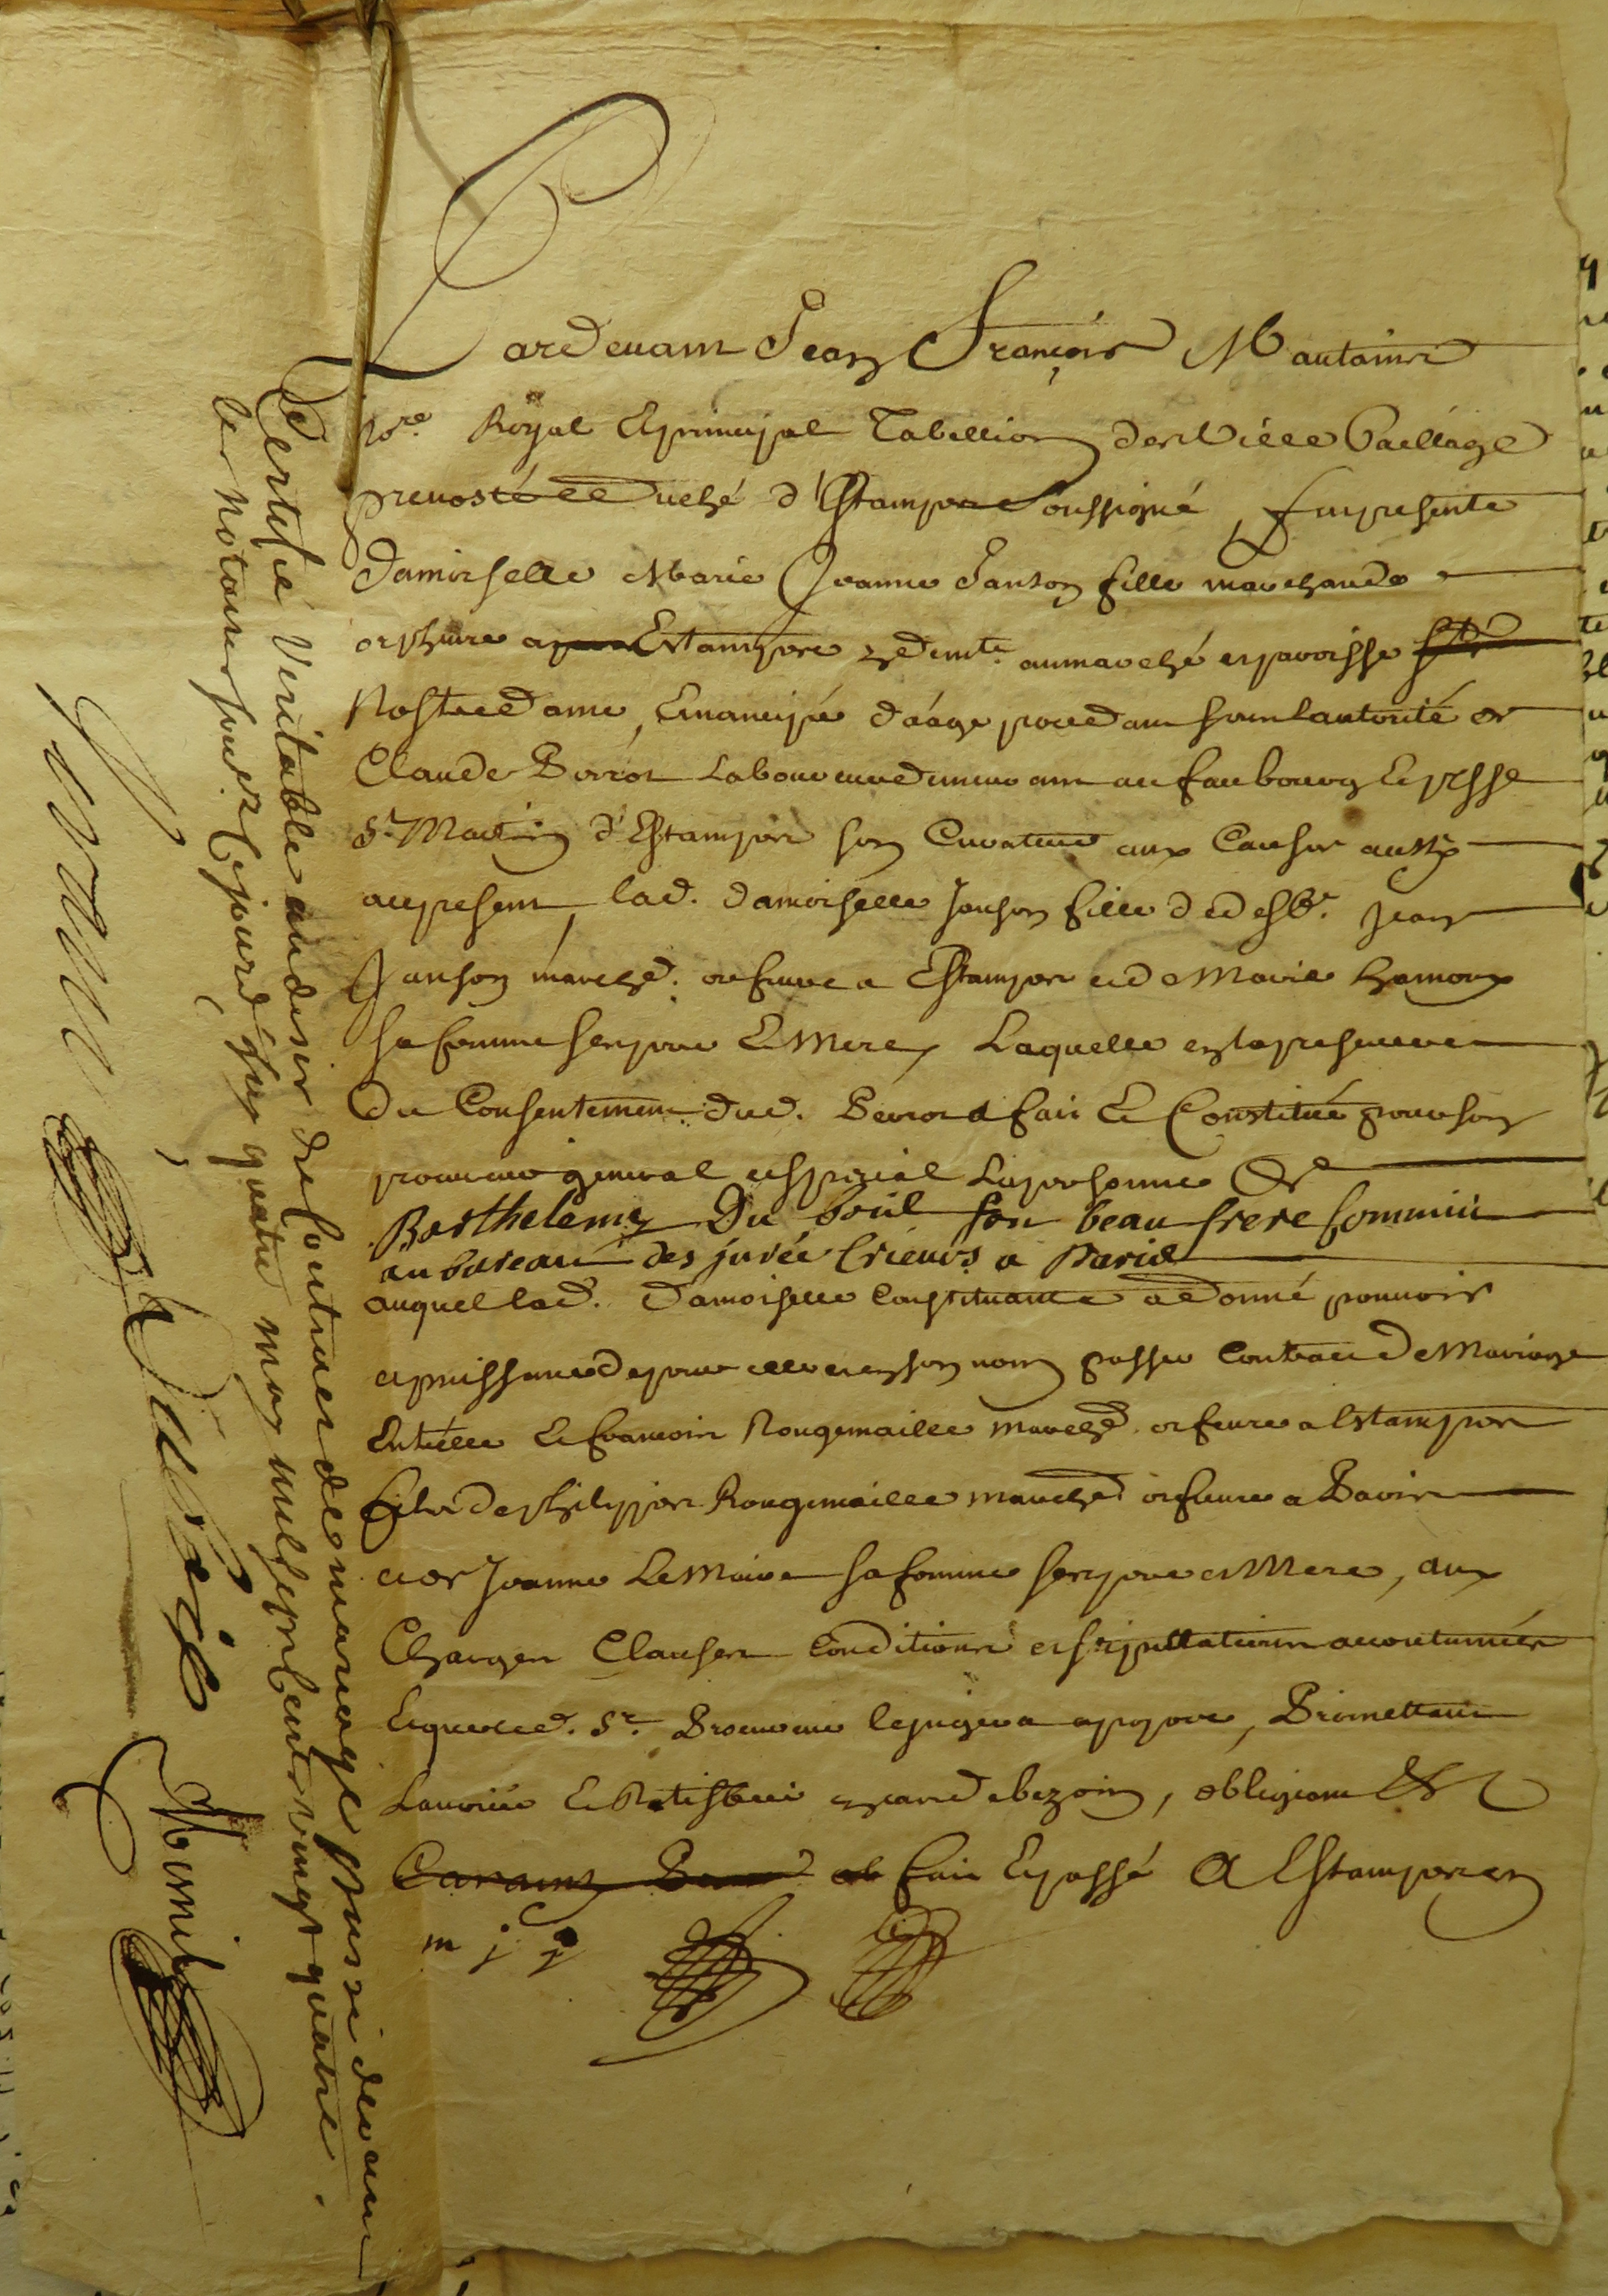 Pardevant Jean François Mautaint
No.re Royal Et principal Tabellion des Ville Bailliage
prevosté et Duché d'Estampes soussigné, fut presente
Damoiselle Marie Jeanne Janson fille marchande
orphevre a Estampes y demte. au marché et paroisse
Nostre dame, Emancipée d'aâge procedant sous l'autorité de
Claude laboureur demeurant au faubourg Et psse
St. Martin d'Estampes son Curateur aux Causes aussy
a ce present, lad. damoiselle Janson fille de deffts. Jean
Janson march.d orfevre a Estampes et de Marie hamoux
sa femme ses pere Et Mere, Laquelle en la presence et
Du Consentement dud. a fait Et Constitué pour son
procureur general et special la personne de
Barthelemy Du bril son beau frere Commis
au bureau des jurée Crieurs a Paris
auquel lad. Damoiselle Constituante a donné pouvoir
et puissance de pour elle et en son nom passer Contract de Mariage
Entr'elle Et francois Rougemaille march.d orfevre a Estampes
fils de philippes Rougemaille march.d orfevre a Paris
et de Jeanne Le Maire sa femme ses pere et Mere, aux
Charges Clauses Conditions et stipullations accoutumées
Et que led. Sr. Procureur le jugera apropos, Promettant
L'avoir Et Ratiffier quand besoin, obligeant &c
fait Et passé A Estampes en
m j j
Certifié Veritable au desir de contract de mariage passé devant
les Notaires sous.ez Cejourd'huy quatre may mil sept cent vingt quatre.